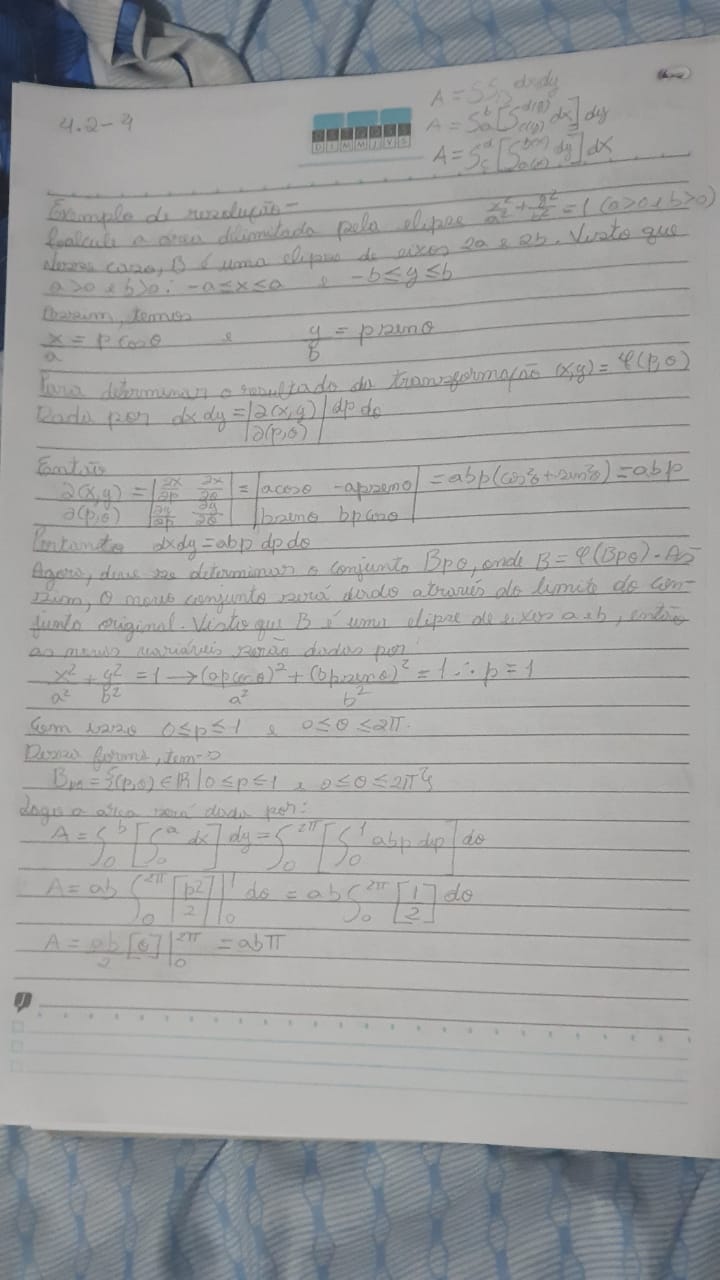 4.2-4
A = ∫∫_B dxdy
A = ∫_a^b [∫_{c(y)}^{d(y)} dx] dy
A = ∫_c^d [∫_{a(x)}^{b(x)} dy] dx
D S T Q Q S S
Exemplo de resolução-
Calcule a área dilimitada pela elipse x²/a² + y²/b² = 1 (a>0 e b>0)
Nesse caso, B é uma elipse de eixos 2a e 2b. Visto que
a>0 e b>0: -a≤x≤a e -b≤y≤b
Assim, temos
x/a = ρ cosθ e y/b = ρ senθ
Para determinar o resultado da transformação (x,y) = φ(ρ,θ)
Dada por dxdy = |∂(x,y)/∂(ρ,θ)| dρ dθ
Então
∂(x,y)/∂(ρ,θ) = |∂x/∂ρ ∂x/∂θ; ∂y/∂ρ ∂y/∂θ| = |acosθ -aρsenθ; bsenθ bρcosθ| = abρ(cos²θ + sen²θ) = abρ
Portanto dxdy = abρ dρ dθ
Agora, deve se determinar o conjunto Bρθ, onde B = φ(Bρθ). As-
sim, o novo conjunto será dado através do limite do con-
junto original. Visto que B é uma elipse de eixos a e b, então
as novas variáveis serão dadas por:
x²/a² + y²/b² = 1 → (aρcosθ)²/a² + (bρsenθ)²/b² = 1 ∴ ρ = 1
Com isso 0≤ρ≤1 e 0≤θ≤2π.
Dessa forma, tem-se
Bρθ = {(ρ,θ) ∈ ℝ | 0≤ρ≤1 e 0≤θ≤2π}
Logo a área será dada por:
A = ∫_0^b [∫_0^a dx] dy = ∫_0^{2π} [∫_0^1 abρ dρ] dθ
A = ab ∫_0^{2π} [ρ²/2]|_0^1 dθ = ab ∫_0^{2π} [1/2] dθ
A = ab/2 [θ]|_0^{2π} = abπ